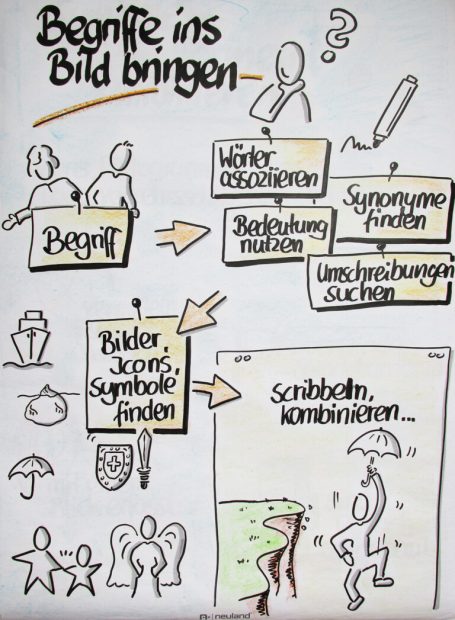 Begriffe ins
Bild bringen
?
Begriff
Wörter
assoziieren
Synonyme
finden
Bedeutung
nutzen
Umschreibungen
suchen
Bilder,
Icons,
Symbole
finden
Scribbeln,
kombinieren...
neuland